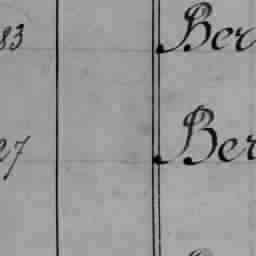 83 Ber
27 Ber